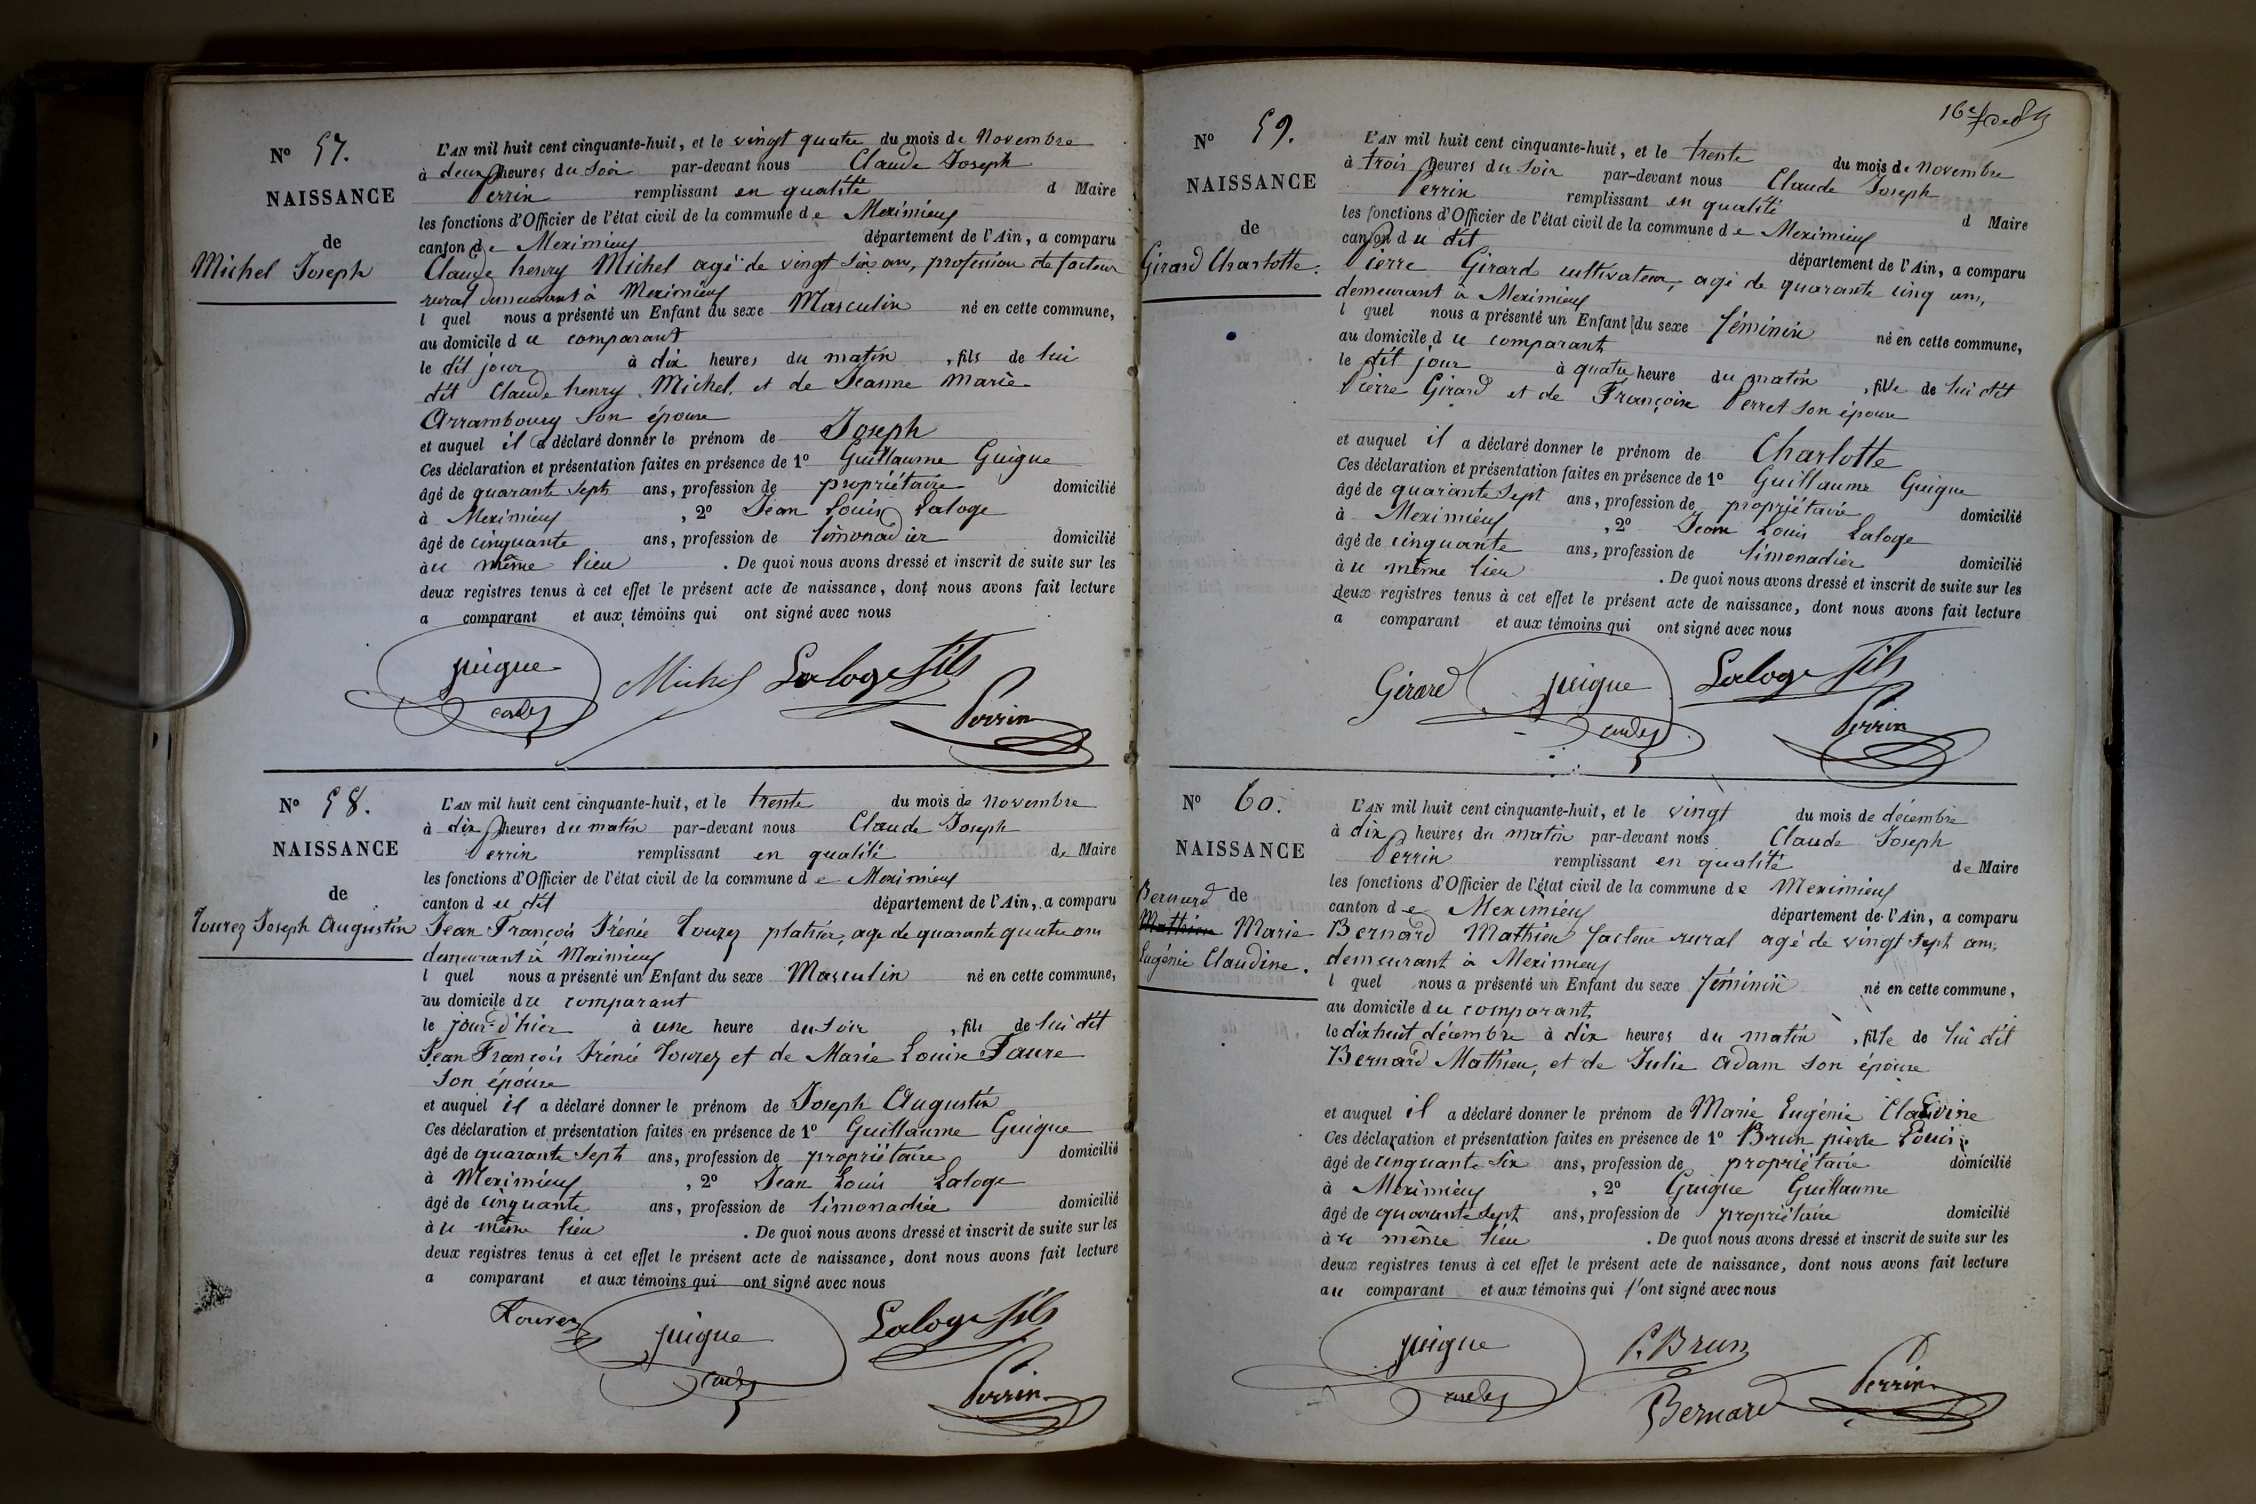 N° 57.
NAISSANCE
de
Michel Joseph
L'AN mil huit cent cinquante-huit, et le vingt quatre du mois de Novembre
à deux heures du Soir par-devant nous Claude Joseph
Perrin remplissant en qualité d Maire
les fonctions d'Officier de l'état civil de la commune de Meximieux
canton de Meximieux département de l'Ain, a comparu
Claude henry Michel agé de vingt six ans, profession de facteur
rural demeurant à Meximieux
l quel nous a présenté un Enfant du sexe Masculin né en cette commune,
au domicile du comparant
le dit jour à dix heures du matin, fils de lui
dit Claude henry Michel. et de Jeanne Marie
Arrambourg son épouse
et auquel il a déclaré donner le prénom de Joseph
Ces déclaration et présentation faites en présence de 1° Guillaume Guigue
âgé de quarante sept ans, profession de propriétaire domicilié
à Meximieux, 2° Jean Louis Laloge
âgé de cinquante ans, profession de limonadier domicilié
au même lieu. De quoi nous avons dressé et inscrit de suite sur les
deux registres tenus à cet effet le présent acte de naissance, dont nous avons fait lecture
a comparant et aux témoins qui ont signé avec nous
guigue Michel Laloge fils
Perrin
N° 58.
NAISSANCE
de
Tourez Joseph Augustin
L'AN mil huit cent cinquante-huit, et le trente du mois de Novembre
à dix heures du matin par-devant nous Claude Joseph
Perrin remplissant en qualité de Maire
les fonctions d'Officier de l'état civil de la commune de Meximieux
canton du dit département de l'Ain, a comparu
Jean François Irénée Tourez platrier, age de quarante quatre ans
demeurant à Meximieux
l quel nous a présenté un Enfant du sexe Masculin né en cette commune,
au domicile du comparant
le jour d'hier à une heure du soir, fils de lui dit
Jean François Irénée Tourez et de Marie Louise Faure
son épouse
et auquel il a déclaré donner le prénom de Joseph Augustin
Ces déclaration et présentation faites en présence de 1° Guillaume Guigue
âgé de quarante sept ans, profession de propriétaire domicilié
à Meximieux, 2° Jean Louis Laloge
âgé de cinquante ans, profession de limonadier domicilié
au même lieu. De quoi nous avons dressé et inscrit de suite sur les
deux registres tenus à cet effet le présent acte de naissance, dont nous avons fait lecture
a comparant et aux témoins qui ont signé avec nous
Tourez guigue Laloge fils
Perrin
N° 59.
NAISSANCE
de
Girard Charlotte.
L'AN mil huit cent cinquante-huit, et le trente du mois de Novembre
à trois heures du Soir par-devant nous Claude Joseph
Perrin remplissant en qualité d Maire
les fonctions d'Officier de l'état civil de la commune de Meximieux
canton du dit département de l'Ain, a comparu
Pierre Girard cultivateur, agé de quarante cinq ans,
demeurant à Meximieux
l quel nous a présenté un Enfant du sexe féminin né en cette commune,
au domicile du comparant
le dit jour à quatre heure du matin, fille de lui dit
Pierre Girard et de Françoise Perret son épouse
et auquel il a déclaré donner le prénom de Charlotte
Ces déclaration et présentation faites en présence de 1° Guillaume Guigue
âgé de quarante sept ans, profession de propriétaire domicilié
à Meximieux, 2° Jean Louis Laloge
âgé de cinquante ans, profession de limonadier domicilié
au même lieu. De quoi nous avons dressé et inscrit de suite sur les
deux registres tenus à cet effet le présent acte de naissance, dont nous avons fait lecture
a comparant et aux témoins qui ont signé avec nous
Gérard guigue Laloge fils
Perrin
N° 60.
NAISSANCE
Bernard de
Mathieu Marie
Eugénie Claudine.
L'AN mil huit cent cinquante-huit, et le vingt du mois de décembre
à dix heures du matin par-devant nous Claude Joseph
Perrin remplissant en qualité de Maire
les fonctions d'Officier de l'état civil de la commune de Meximieux
canton de Meximieux département de l'Ain, a comparu
Bernard Mathieu facteur rural agé de vingt sept ans,
demeurant à Meximieux
l quel nous a présenté un Enfant du sexe féminin né en cette commune,
au domicile du comparant
le dix huit décembre à dix heures du matin, fille de lui dit
Bernard Mathieu, et de Julie Adam son épouse
et auquel il a déclaré donner le prénom de Marie Eugénie Claudine
Ces déclaration et présentation faites en présence de 1° Brun pierre Louis
âgé de cinquante six ans, profession de propriétaire domicilié
à Meximieux, 2° Guigue Guillaume
âgé de quarante sept ans, profession de propriétaire domicilié
au même lieu. De quoi nous avons dressé et inscrit de suite sur les
deux registres tenus à cet effet le présent acte de naissance, dont nous avons fait lecture
au comparant et aux témoins qui l'ont signé avec nous
guigue P. Brun
Bernard Perrin